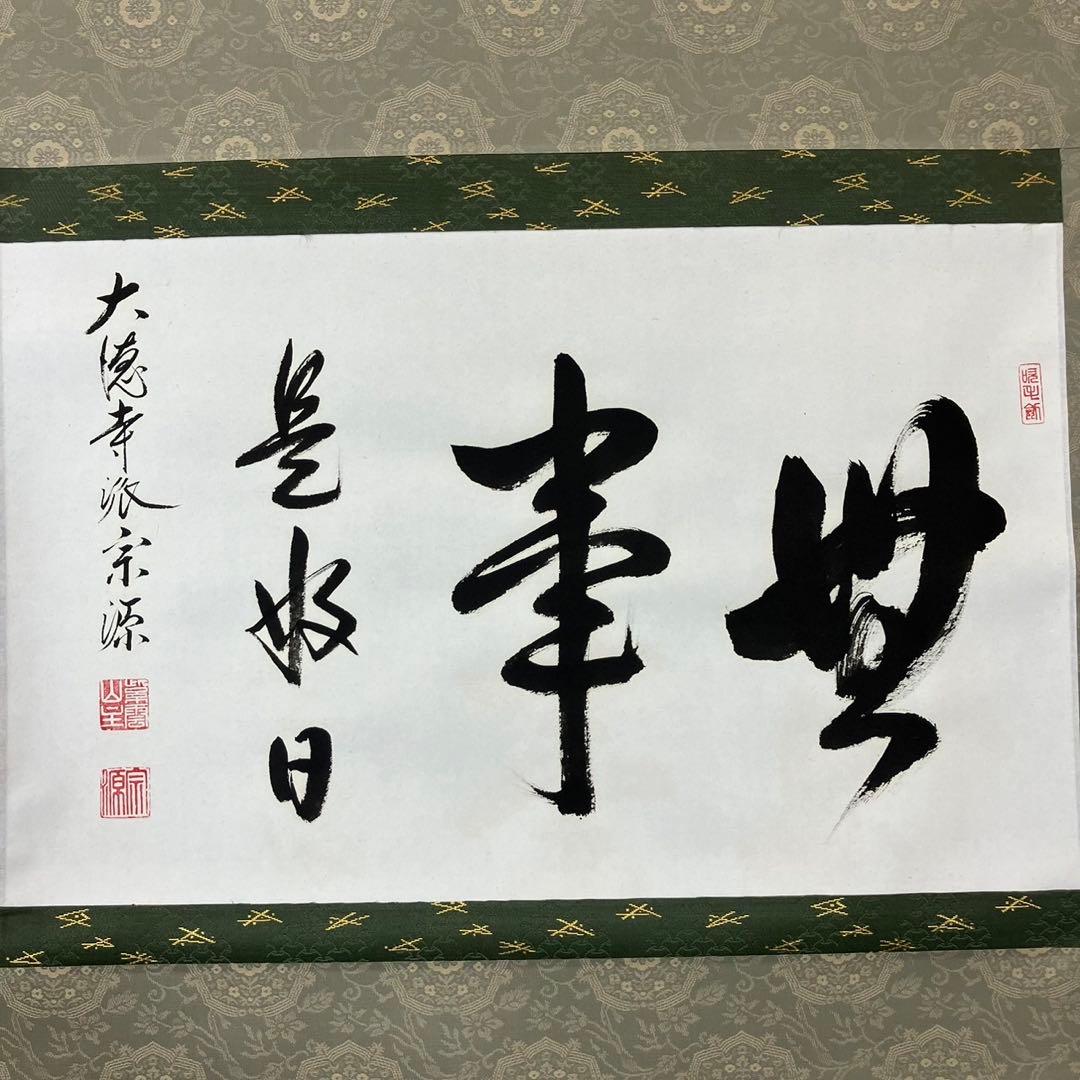 無事
是好日
大徳寺派宗源
宗源